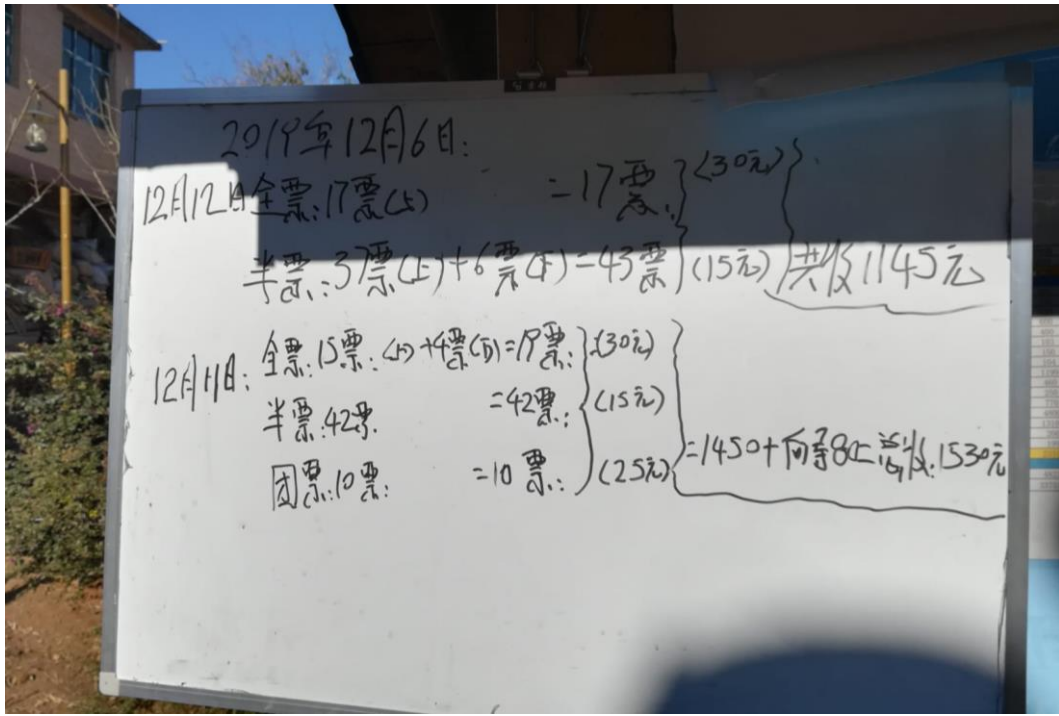 2019年12月6日:
12月12日 全票:17票(上) =17票: (30元)
半票:37票(上)+6票(下)=43票 (15元) 共收1145元
12月11日: 全票:15票:(上)+4票(下)=19票: (30元)
半票:42票. =42票: (15元)
团票:10票: =10票: (25元) =1450+向导80=总收:1530元